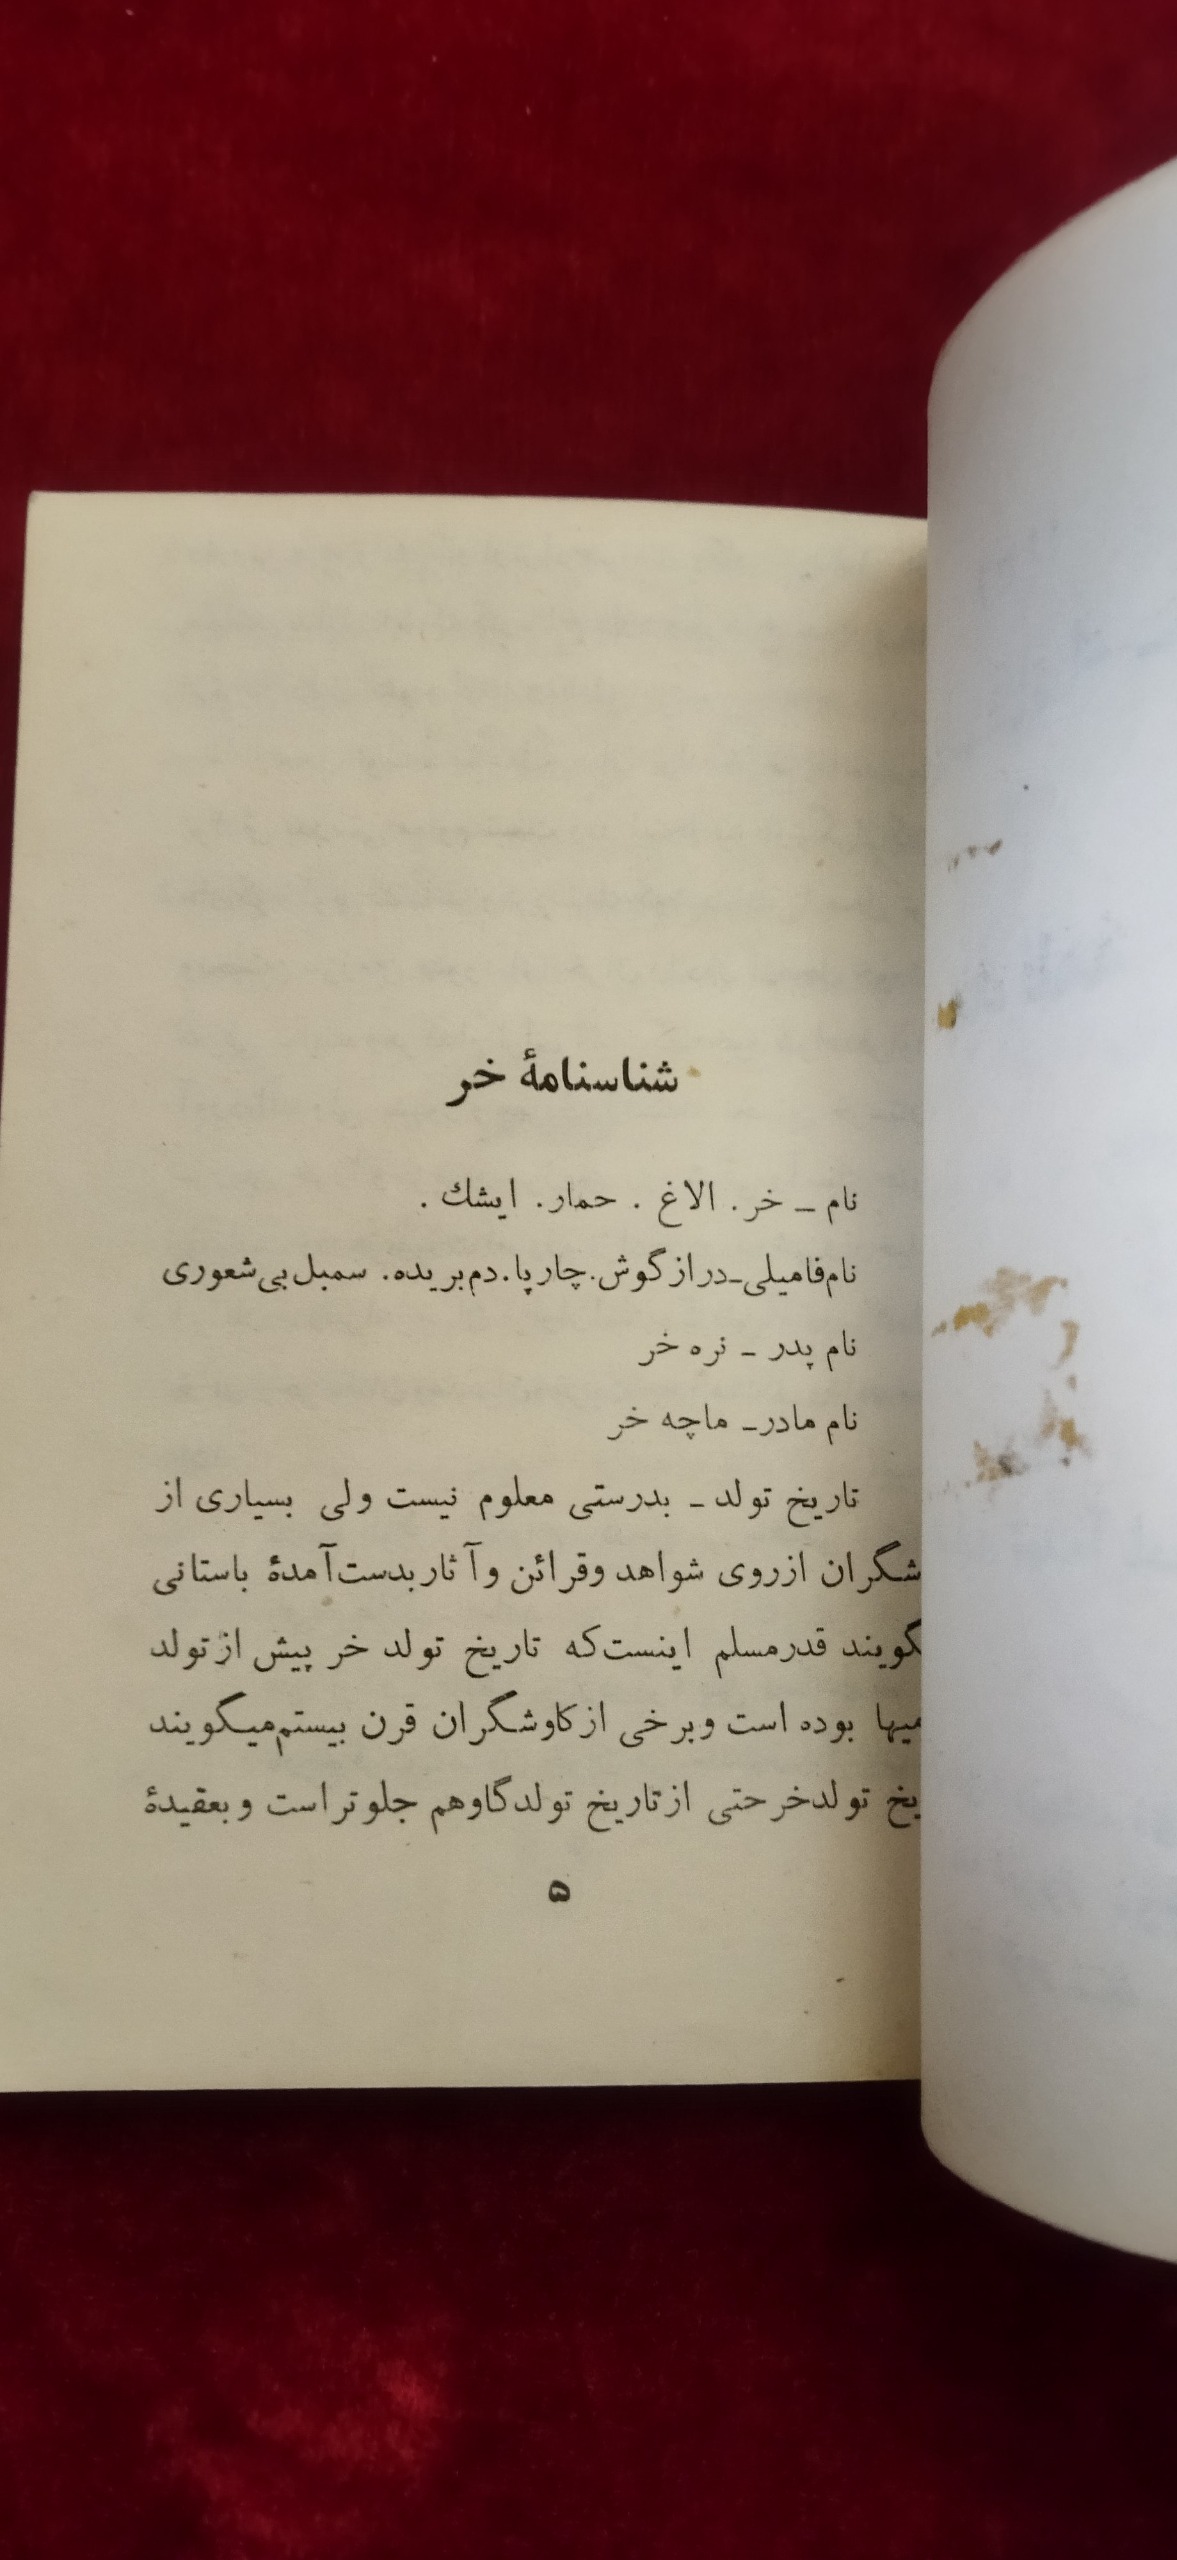 شناسنامهٔ خر
نام ـ خر. الاغ . حمار. ایشك .
نام‌فامیلی‌ـ‌درازگوش.چارپا.دم‌بریده. سمبل‌بی‌شعوری
نام پدر ـ نره خر
نام مادرـ ماچه خر
تاریخ تولد ـ بدرستی معلوم نیست ولی بسیاری از
شگران ازروی شواهد وقرائن وآثاربدست‌آمدهٔ باستانی
گویند قدرمسلم اینست‌که تاریخ تولد خر پیش ازتولد
میها بوده است وبرخی ازکاوشگران قرن بیستم‌میگویند
یخ تولدخرحتی ازتاریخ تولدگاوهم جلوتراست وبعقیدهٔ
۵